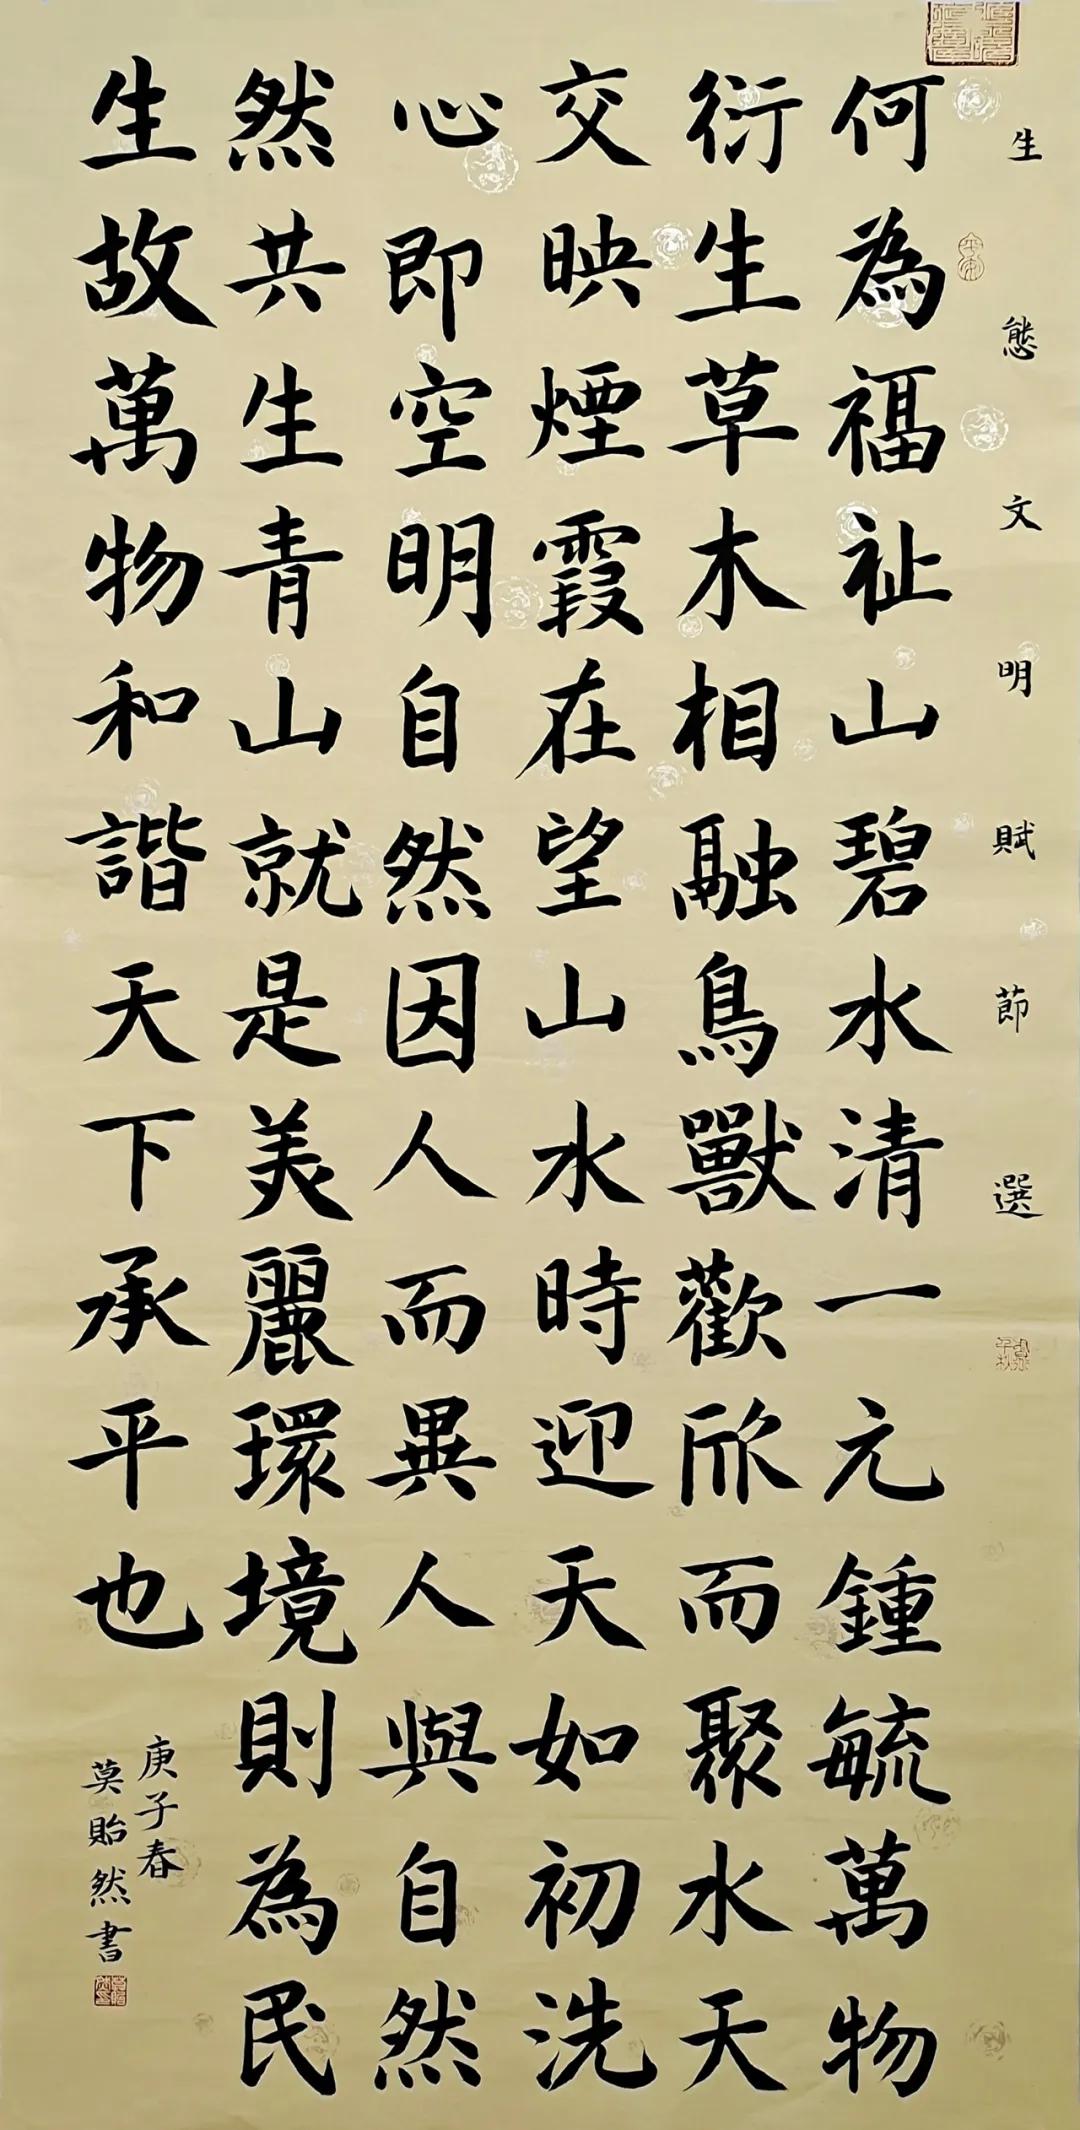 生態文明賦節選
何為福祉山碧水清一元鍾毓萬物
衍生草木相融鳥獸歡欣而聚水天
交映煙霞在望山水時迎天如初洗
心即空明自然因人而異人與自然
然共生青山就是美麗環境則為民
生故萬物和諧天下承平也
庚子春
莫貽然書